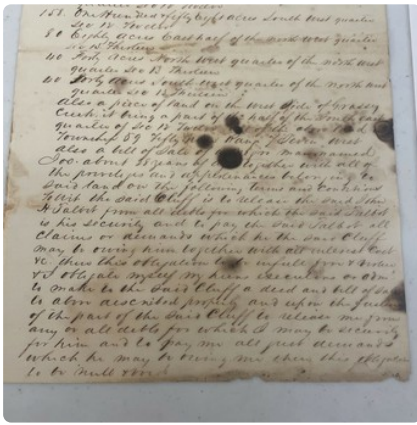 158. One Hundred & fifty eight acres South West quarter
Sec 12 Twelve
80 Eighty Acres East half of the North West quarter
Sec 13 Thirteen
40 Forty Acres North West quarter of the north west
quarter Sec 13 Thirteen
40 Forty Acres South West quarter of the north west
quarter Sec 13 Thirteen
Also a piece of land on the West side of Grassy
Creek it being a part of half of the South East
quarter of Sec 12 Twelve of the above
Township 59 Fifty Range 7 Seven West
also a bill of Sale for man named
Joe. about 35 years of together with all of
the priviledges and appurtenances belonging to
said land on the following terms and conditions
to Wit the said Cluff is to release the said John
H Talbot from all debts for which the said Talbot
is his security and to pay the said Talbot all
claims or demands which he the said Cluff
may be owing him together with all interest Cost
&c. then this obligation to be
& I obligate myself my heirs executors or adm
to make to the said Cluff a deed and bill of Sale
to above described property and upon the failure
of the part of the said Cluff to release me from
any or all debts for which I may be security
for him and to pay me all just demands
which he may be owing me then this obligation
to be null & void